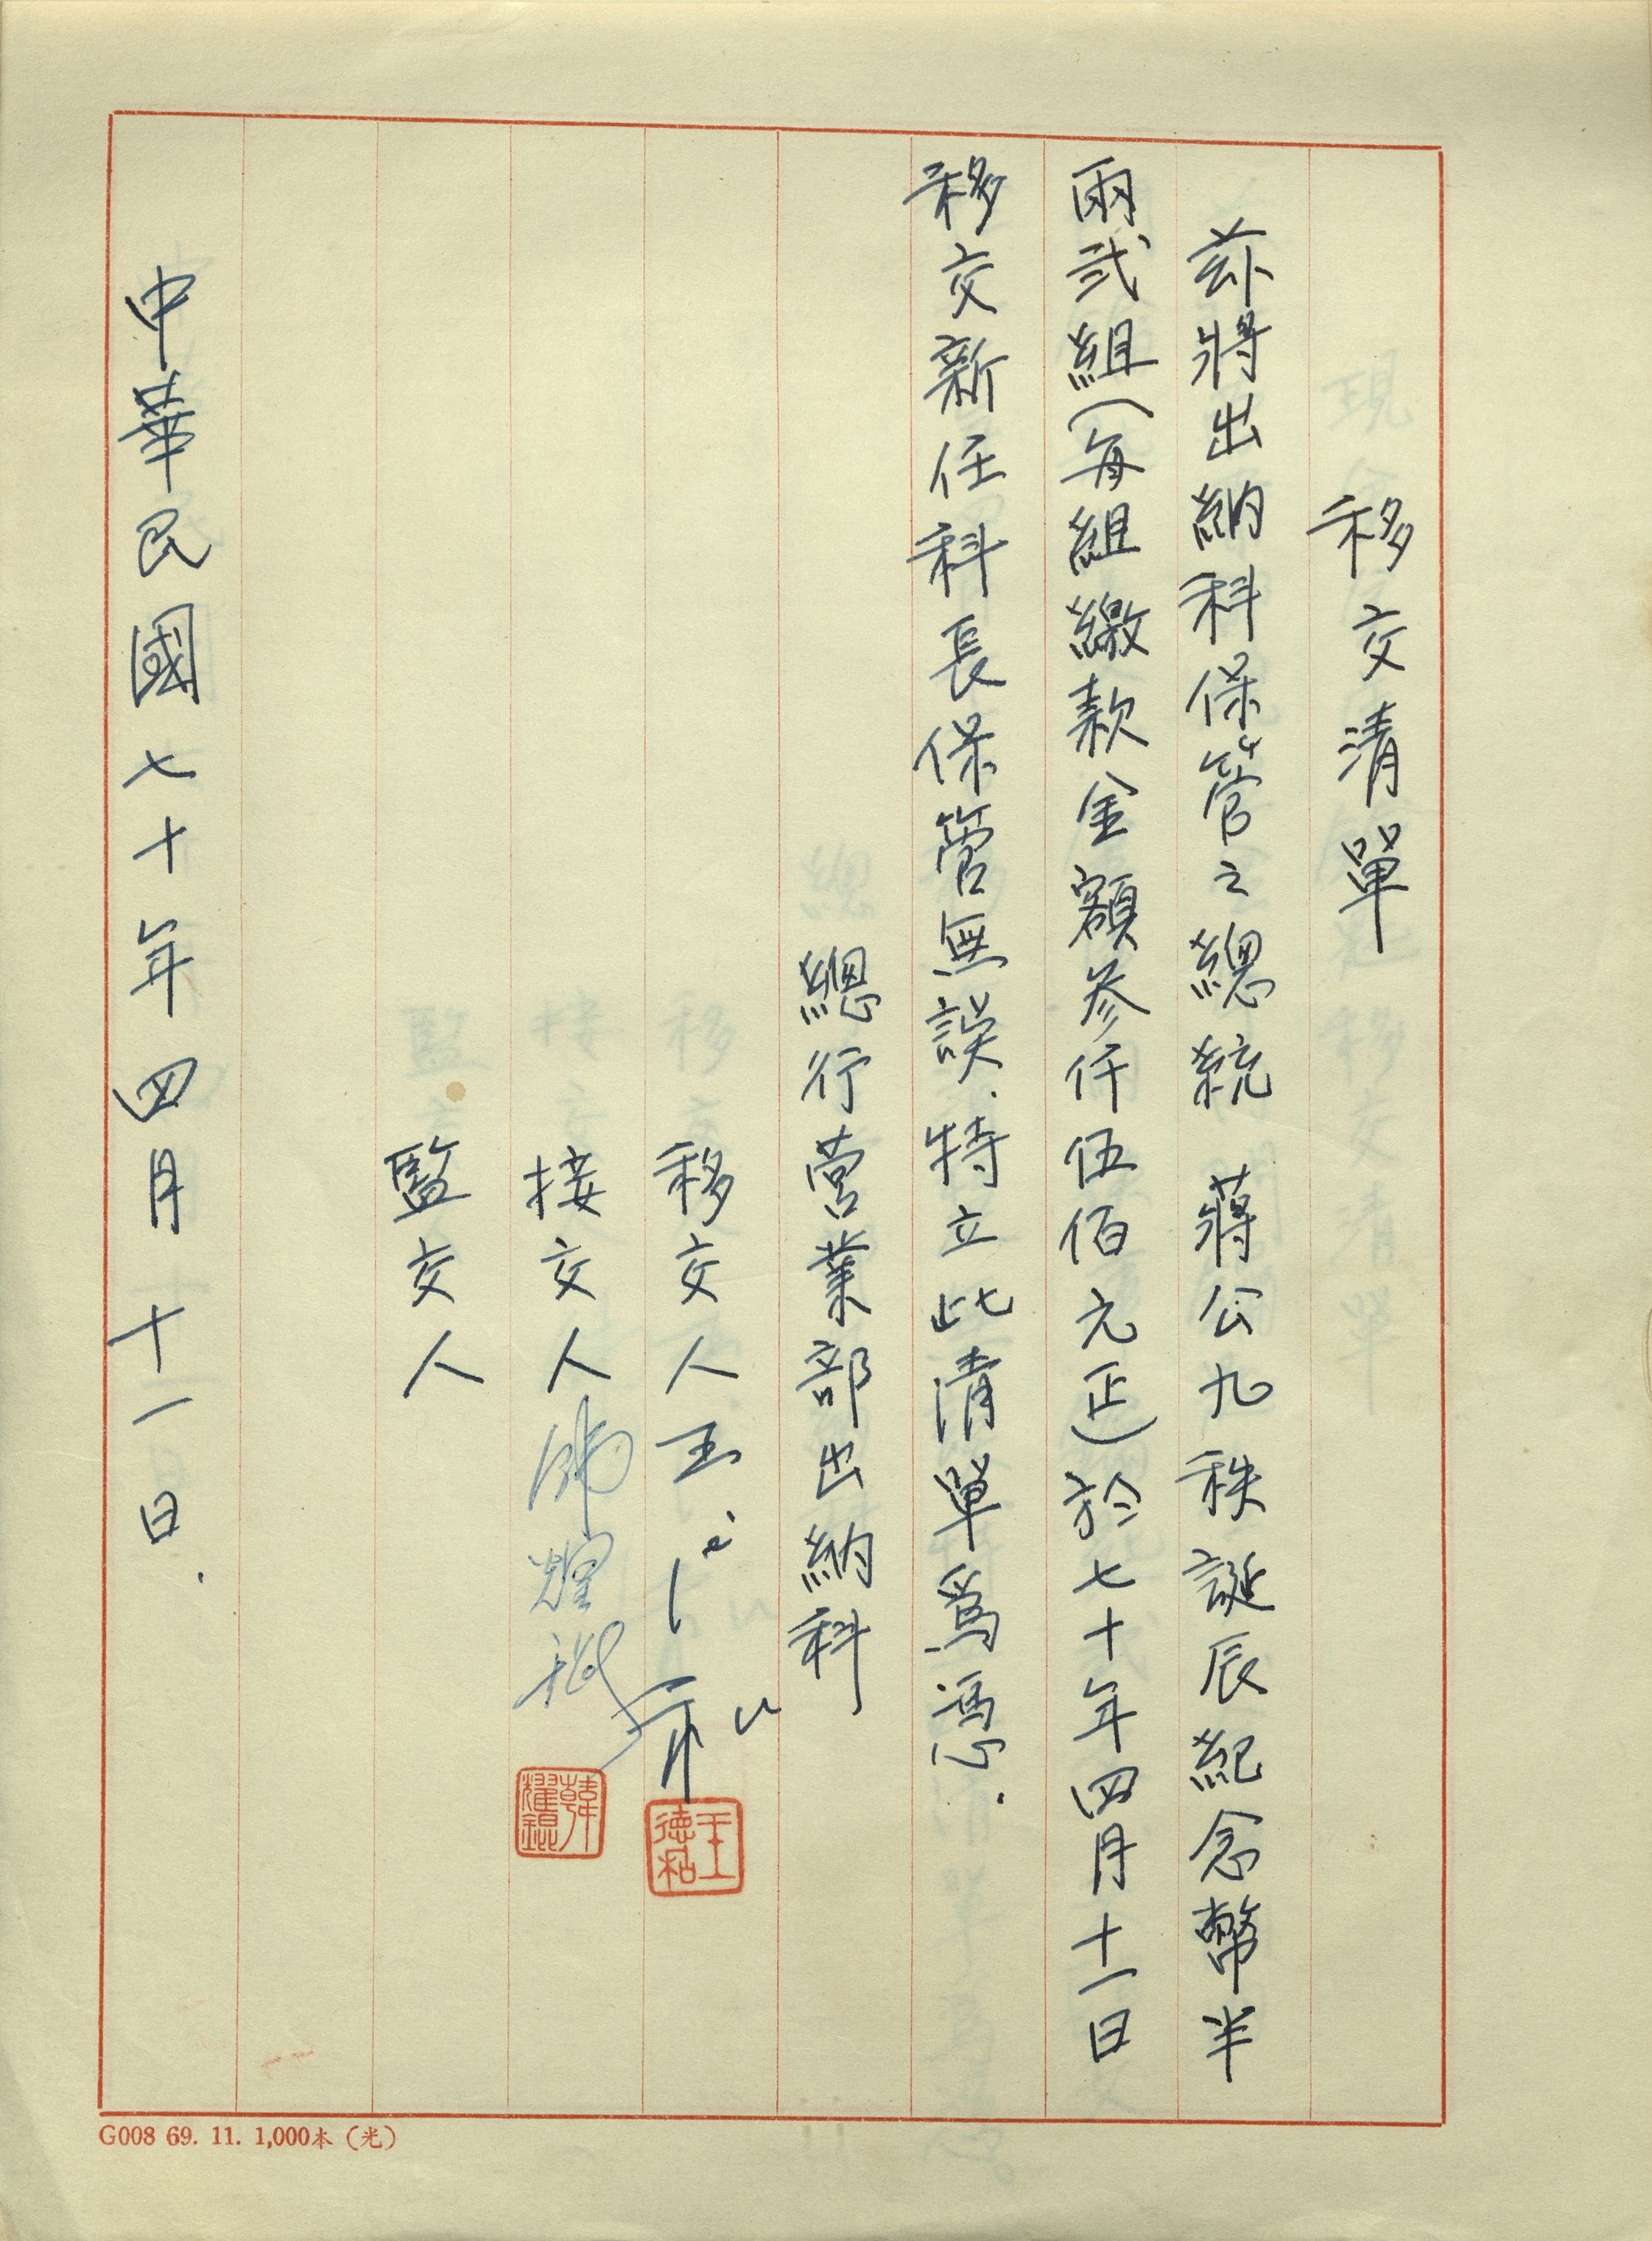 移交清單
茲將出納科保管之總統　蔣公九秩誕辰紀念幣半
兩弍組(每組繳款金額參仟伍佰元正)於七十年四月十一日
移交新任科長保管無誤.特立此清單爲憑.
總行營業部出納科
移交人王
王德
接交人
韓耀錕
監交人
中華民國七十年四月十一日.
G008 69. 11. 1,000本 (光)